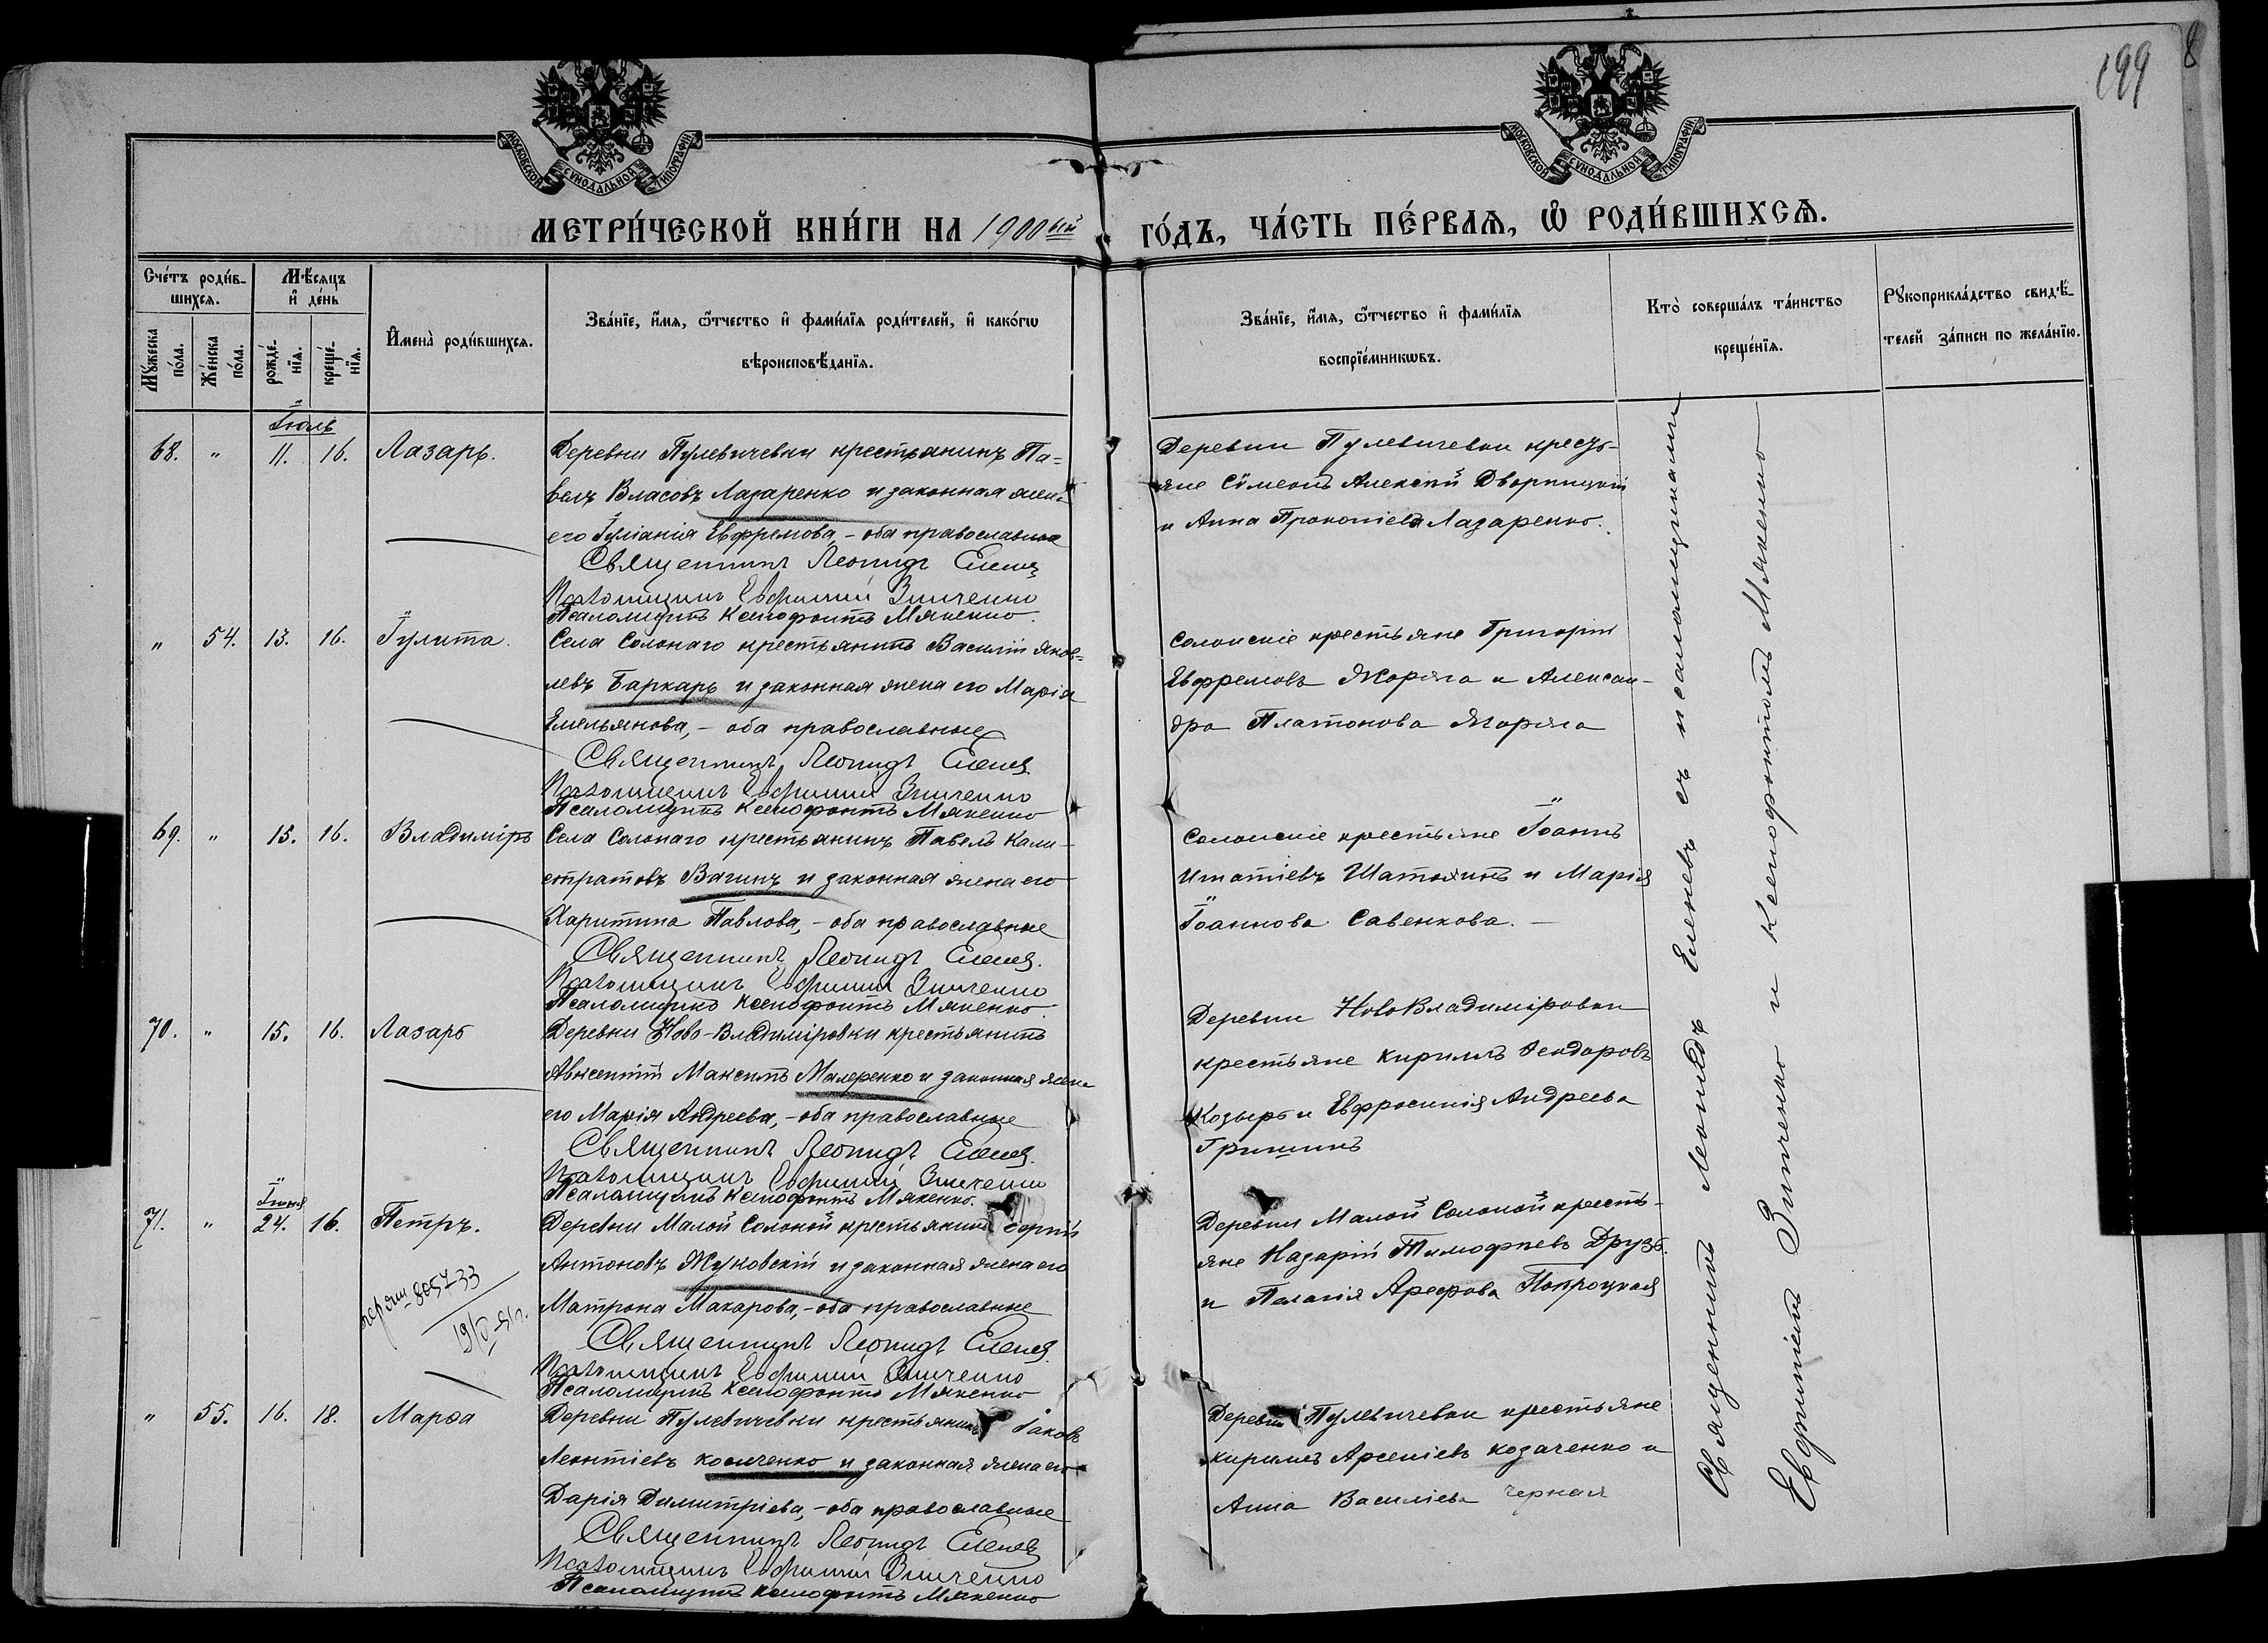 199
8
МОСКОВСКОЙ СУНОДАЛЬНОЙ ТИПОГРАФІИ
МОСКОВСКОЙ СУНОДАЛЬНОЙ ТИПОГРАФІИ
МЕТРИ́ЧЕСКОЙ КНИ́ГИ НА 1900ый ГО́ДЪ, ЧА́СТЬ ПЕ́РВАѦ, Ѡ РОДИ́ВШИХСѦ.
Сче́тъ роди́в-
шихсѧ.
Мѣ́сѧцъ
и҆ де́нь
Мꙋ́жеска
по́ла.
Же́нска
по́ла.
рожде́-
нїѧ.
креще́-
нїѧ.
И҆мена̀ роди́вшихсѧ.
Зва́нїе, и҆́мѧ, ѻ҆́тчество и҆ фами́лїѧ роди́телей, и҆ како́гѡ
вѣроисповѣ́данїѧ.
Зва́нїе, и҆́мѧ, ѻ҆́тчество и҆ фами́лїѧ
воспрїе́мникѡвъ.
Кто̀ соверша́лъ та́инство
креще́нїѧ.
Рꙋкоприкла́дство свидѣ́-
телей за́писи по жела́нїю.
Іюль
68. " 11. 16. Лазарь.
Деревни Пулевичевки крестьянинъ Па-
велъ Власовъ Лазаренко и законная жена
его Іуліанія Евфремова, - оба православные
Священникъ Леонидъ Еленевъ
Псаломщикъ Евфимій Зинченко
Псаломщикъ Ксенофонтъ Мякенко.
Деревни Пулевичевки кресть-
яне Сѵмеонъ Алексѣй Дворницкій
и Анна Прокопіева Лазаренко.
" 54. 13. 16. Іулита.
Села Солонаго крестьянинъ Василій Яков-
левъ Баркарь и законная жена его Марія
Емельянова, - оба православные
Священникъ Леонидъ Еленевъ
Псаломщикъ Евфимій Зинченко
Псаломщикъ Ксенофонтъ Мякенко
Солонскіе крестьяне Григорій
Евфремовъ Жоряга и Алексан-
дра Платонова Жоряга
69. " 15. 16. Владиміръ
Села Солонаго крестьянинъ Павелъ Кали-
стратовъ Вагинъ и законная жена его
Харитина Павлова, - оба православные
Священникъ Леонидъ Еленевъ.
Псаломщикъ Евфимій Зинченко
Псаломщикъ Ксенофонтъ Мякенко.
Солонскіе крестьяне Іоаннъ
Игнатіевъ и Марія
Іоаннова Савенкова. -
70. " 15. 16. Лазарь
Деревни Ново-Владиміровки крестьянинъ
Авксентій Максимъ Маляренко и законная жена
его Марія Андреева, - оба православные
Священникъ Леонидъ Еленевъ.
Псаломщикъ Евфимій Зинченко
Псаломщикъ Ксенофонтъ Мякенко.
Деревни НовоВладиміровки
крестьяне Кириллъ Ѳеодоровъ
Козырь и Евфросинія Андреева
Гришинъ
Іюня
71. " 24. 16. Петръ.
Деревни Малой Солоной крестьянинъ Сергій
Антоновъ Жуковскій и законная жена его
Матрона Макарова, - оба православные
Священникъ Леонидъ Еленевъ.
Псаломщикъ Евфимій Зинченко
Псаломщикъ Ксенофонтъ Мякенко
Деревни Малой Солоной кресть-
яне Назарій Тимофеевъ Друзь.
и Пелагія Арефова Попроцкая
805733
" 55. 16. 18. Марѳа
Деревни Пулевичевки крестьянинъ Іаковъ
Леонтіевъ и законная жена его
Дарія Димитріева, - оба православные
Священникъ Леонидъ Еленевъ
Псаломщикъ Евфимій Зинченко
Псаломщикъ Ксенофонтъ Мякенко
Деревни Пулевичевки крестьяне
Кириллъ Арсеніевъ Козаченко и
Анна Василіева Черная
Священникъ Леонидъ Еленевъ съ псаломщиками
Евфиміемъ Зинченко и Ксенофонтомъ Мякенко